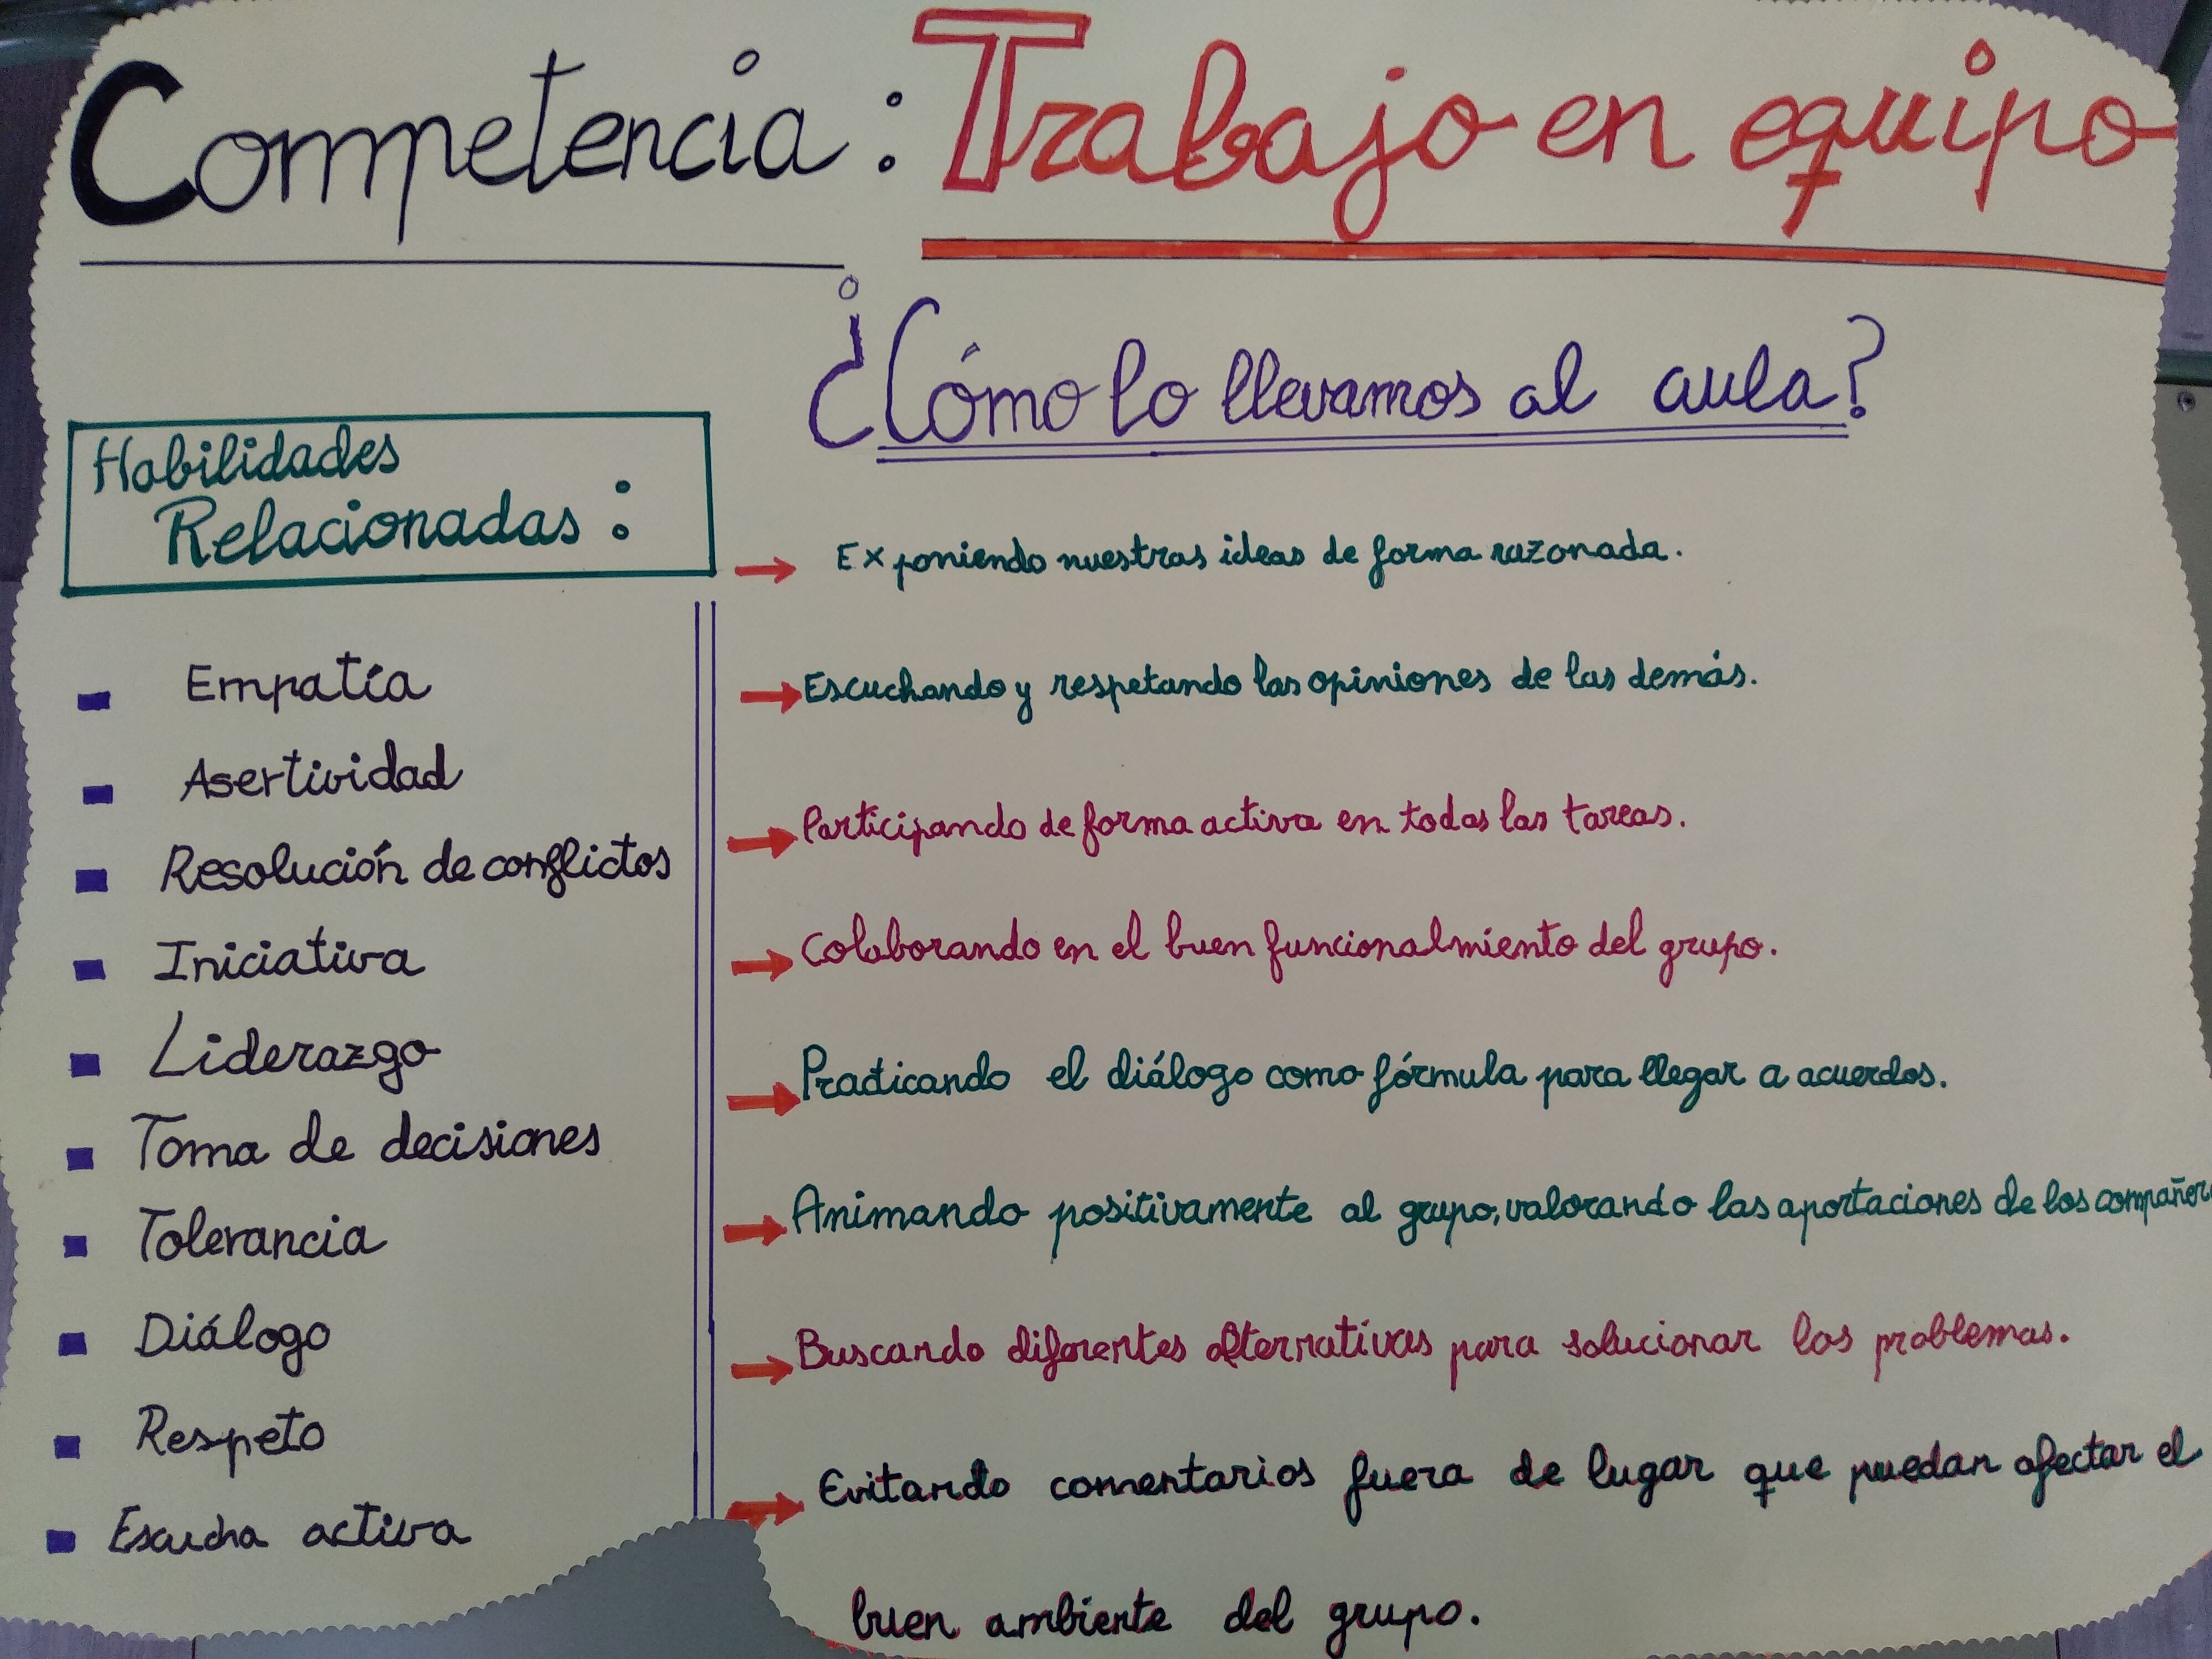 Competencia: Trabajo en equipo
¿Cómo lo llevamos al aula?
Habilidades
Relacionadas:
Empatía
Asertividad
Resolución de conflictos
Iniciativa
Liderazgo
Toma de decisiones
Tolerancia
Diálogo
Respeto
Escucha activa
Exponiendo nuestras ideas de forma razonada.
Escuchando y respetando las opiniones de las demás.
Participando de forma activa en todas las tareas.
Colaborando en el buen funcionalmiento del grupo.
Practicando el diálogo como fórmula para llegar a acuerdos.
Animando positivamente al grupo, valorando las aportaciones de los compañer
Buscando diferentes alternativas para solucionar los problemas.
Evitando comentarios fuera de lugar que puedan afectar el
buen ambiente del grupo.